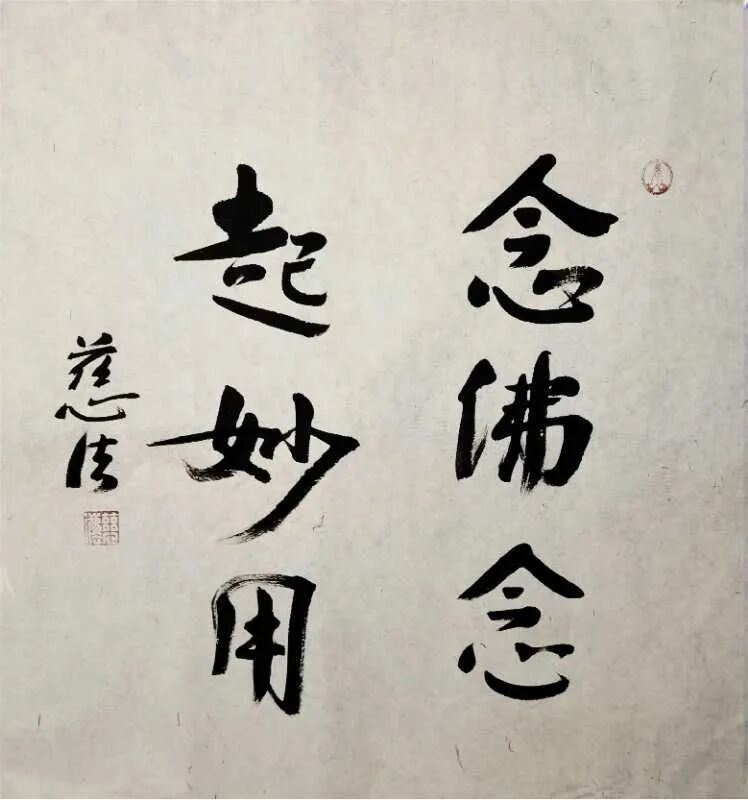 念佛念
起妙用
慈法